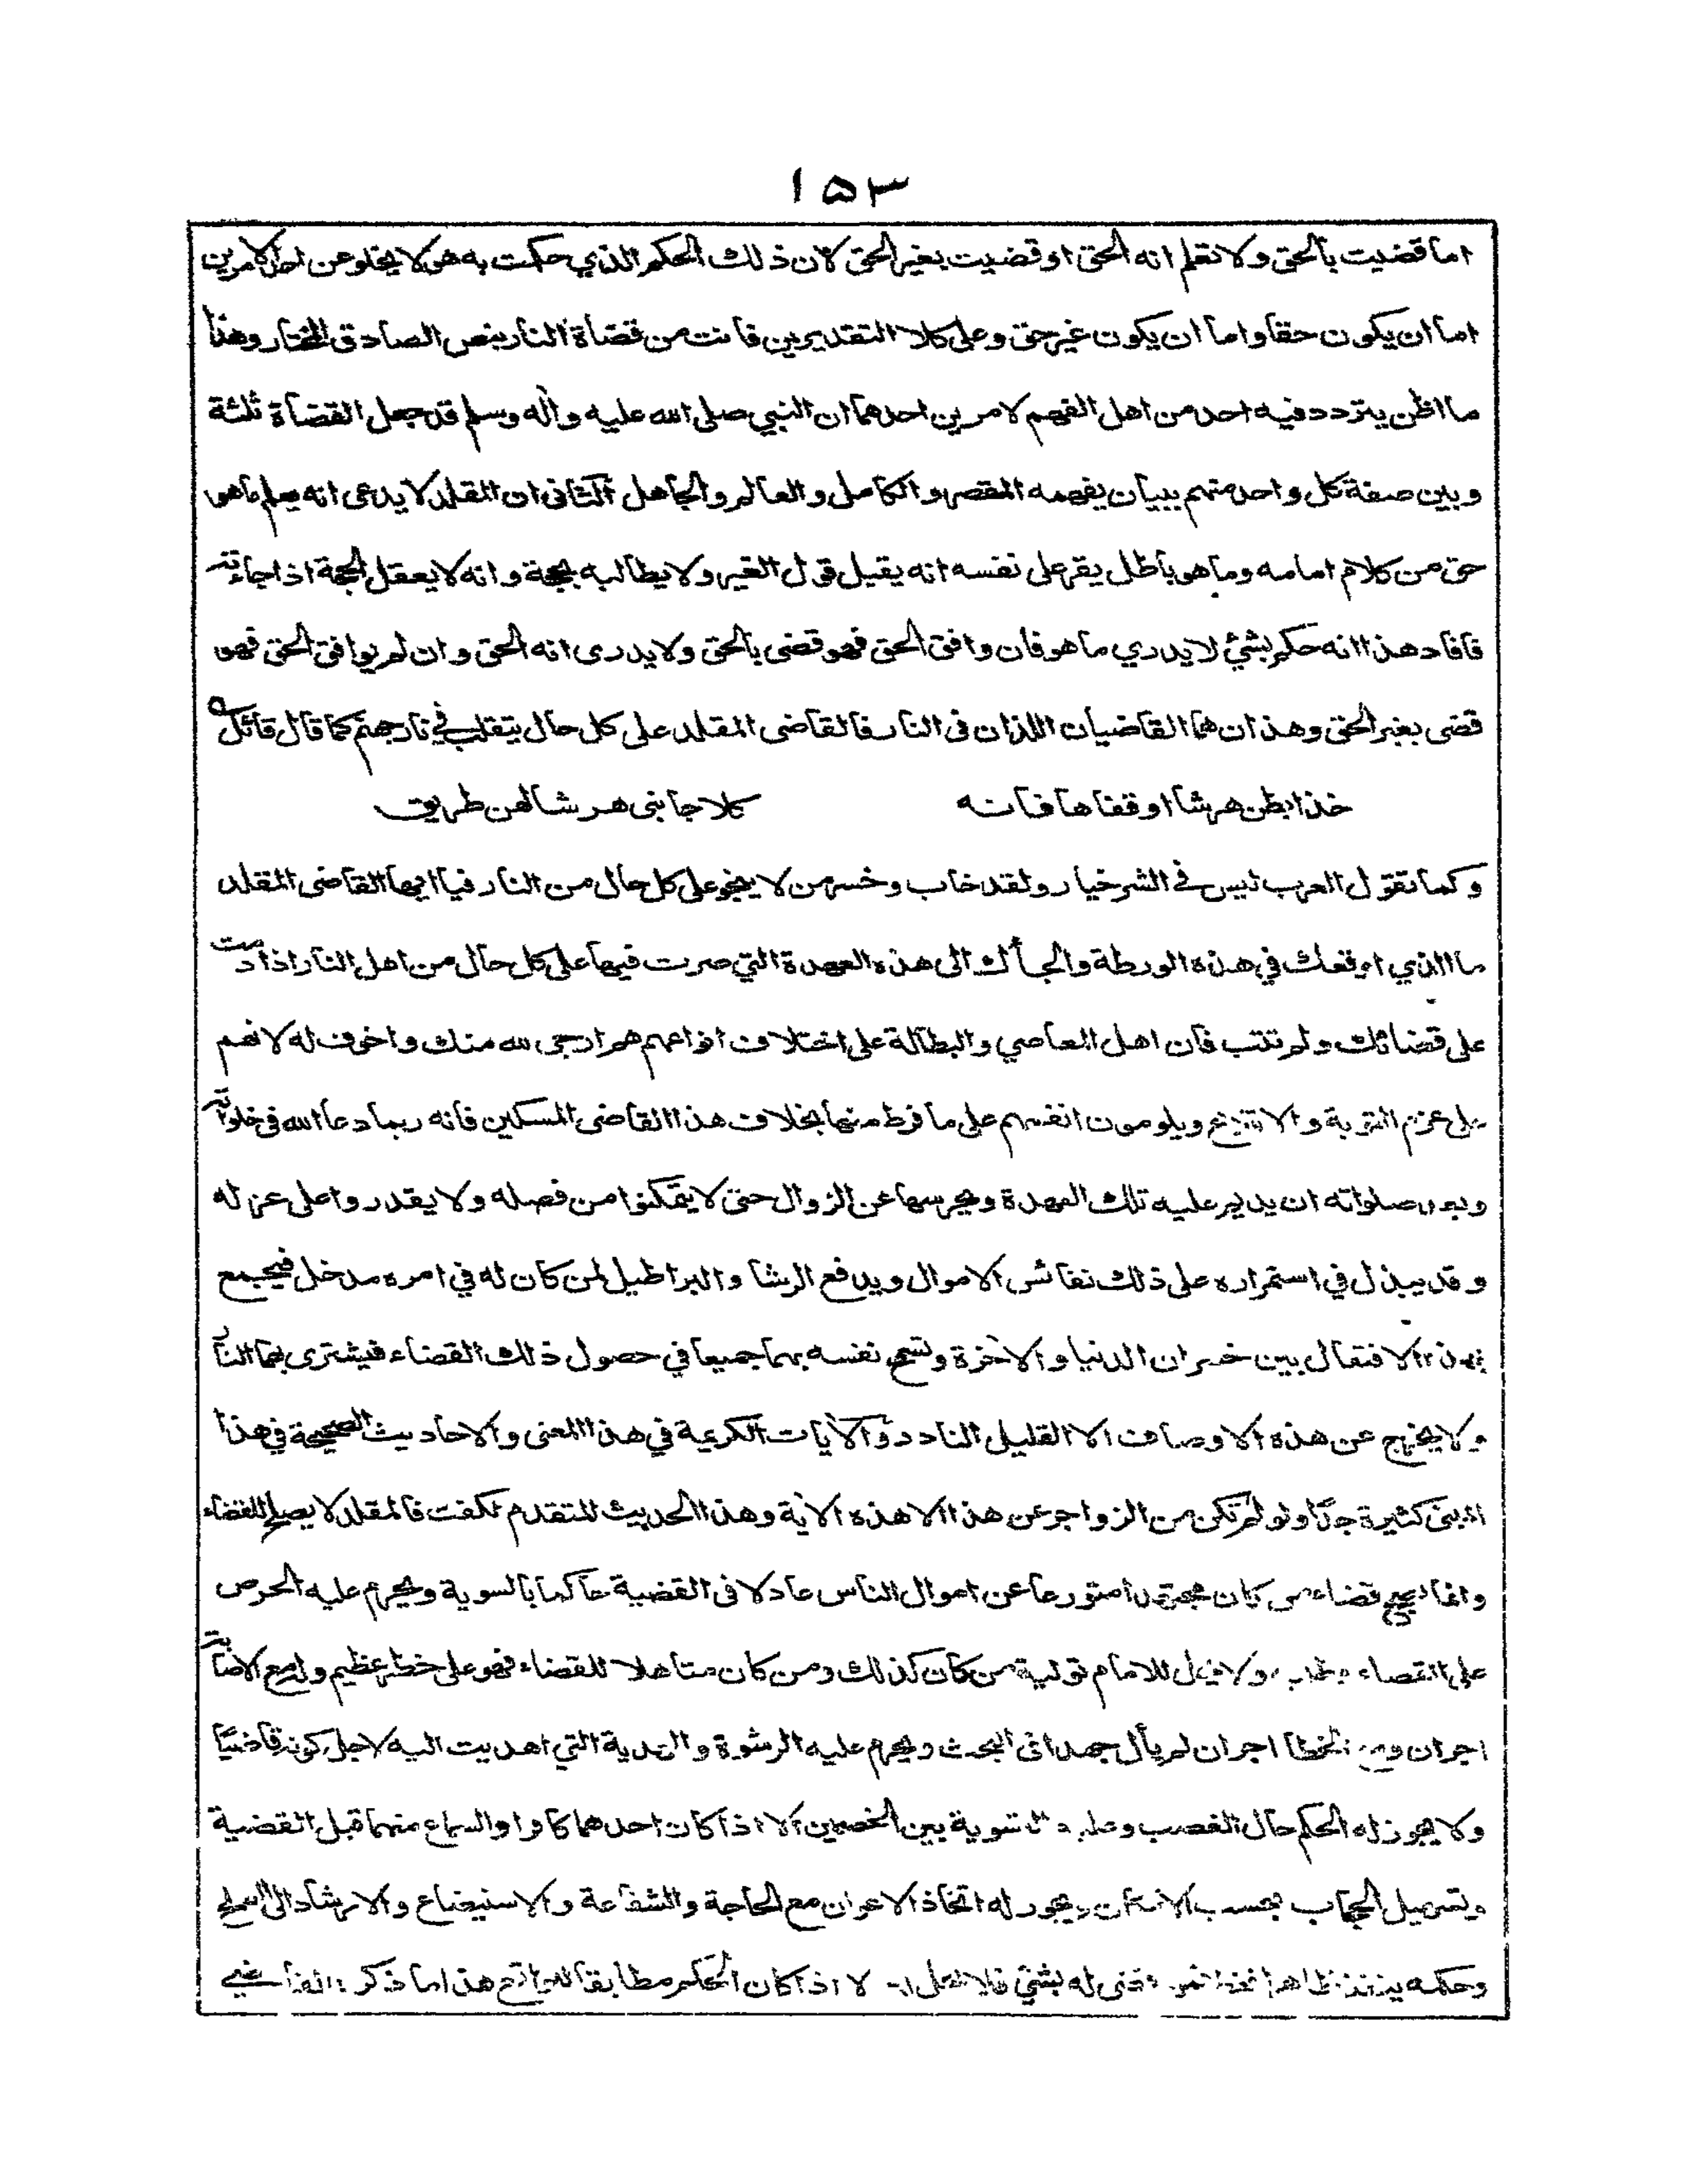 ١٥٣
اما قضيت بالحق ولا تعلم انه الحق او قضيت بغير الحق لان ذلك الحكم الذي حكمت به هو لا يخلو عن احد الامرين
اما ان يكون حقا واما ان يكون غير حق وعلى كلا التقديرين فانت من قضاة النار بنص الصادق المختار وهذا
ما اظن يتردد فيه احد من اهل الفهم لامرين احدهما ان النبي صلى الله عليه واله وسلم قد جعل القضاة ثلثة
وبين صفة كل واحد منهم ببيان يفهمه المقصر والكامل والعالم والجاهل الثانى ان المقلد لا يدعى انه يعلم ما هو
حق من كلام امامه وما هو باطل بل يقر على نفسه انه يقبل قول الغير ولا يطالبه بحجة وانه لا يعقل الحجة اذا جاءته
فافاد هذا انه حكم بشئ لا يدري ما هو فان وافق الحق فهو قضى بالحق ولا يدرى انه الحق وان لم يوافق الحق فهو
قضى بغير الحق وهذان هما القاضيان اللذان فى النار فالقاضى المقلد على كل حال يتقلب في نار جهنم كما قال قائل ه
خذا بطن هرشا او قفاها فانه كلا جانبى هرشا لهن طريق
وكما تقول العرب ليس في الشر خيار ولقد خاب وخسر من لا ينجو على كل حال من النار فيا ايها القاضى المقلد
ما الذي اوقعك في هذه الورطة والجأك الى هذه العهدة التي صرت فيها على كل حال من اهل النار اذا دمت
على قضائك ولم تتب فان اهل المعاصي والبطالة على اختلاف انواعهم هم ارجى لله منك واخوف له لانهم
على عزم التوبة والاقلاع ويلومون انفسهم على ما فرط منها بخلاف هذا القاضى المسكين فانه ربما دعا الله فى خلواته
وبعد صلواته ان يديم عليه تلك العهدة ويحرسها عن الزوال حتى لا يتمكنوا من فصله ولا يقدروا على عزله
وقد يبذل في استمراره على ذلك نفائس الاموال ويدفع الرشا والبراطيل لمن كان له في امره مدخل فيجمع
بهذا الافتعال بين خسران الدنيا والاخرة وتسمح نفسه بهما جميعا في حصول ذلك القضاء فيشترى بهما النار
ولا يخرج عن هذه الاوصاف الا القليل النادر والايات الكريمة في هذا المعنى والاحاديث الصحيحة في هذا
المعنى كثيرة جدا ولو لم تكن من الزواجر عن هذا الا هذه الاية وهذا الحديث المتقدم لكفت فالمقلد لا يصلح للقضاء
وانما يصح قضاء من كان مجتهدا متورعا عن اموال الناس عادلا فى القضية حاكما بالسوية ويحرم عليه الحرص
على القضاء وطلبه ولا يحل للامام تولية من كان كذلك ومن كان متاهلا للقضاء فهو على خطر عظيم وله مع الاصابة
اجران ومع الخطأ اجر ان لم يأل جهدا فى البحث ويحرم عليه الرشوة والهدية التي اهديت اليه لاجل كونه قاضيا
ولا يجوز له الحكم حال الغضب وعليه التسوية بين الخصمين الا اذا كان احدهما كافرا والسماع منهما قبل القضية
وتسهيل الحجاب بحسب الامكان ويجوز له اتخاذ الاعوان مع الحاجة والشفاعة والاستيضاع والارشاد الى الصلح
وحكمه ينفذ ظاهرا فقط فمن قضى له بشئ فلا يحل له الا اذا كان الحكم مطابقا للواقع هذا ما ذكر القاضى